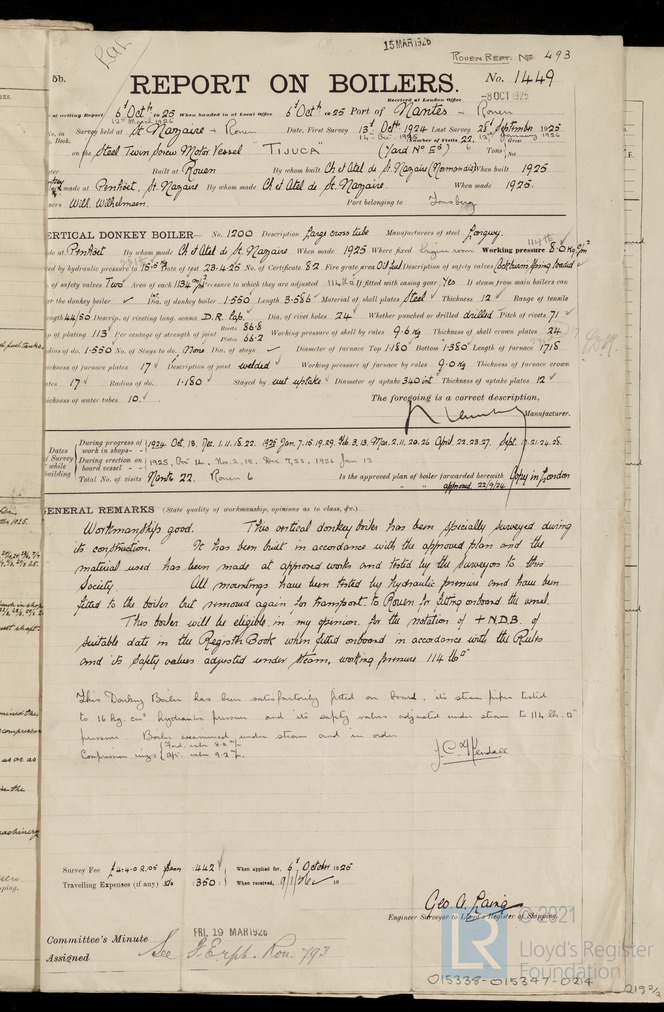 15 MAR 1926
ROUEN REPT. No 493
5b.
REPORT ON BOILERS.
No. 1449
Received at London Office
-8 OCT 1925
of writing Report 6th Octh 1925 When handed in at Local Office 6th Octh 1925 Port of Nantes - Rouen
12th March 1926
Survey held at St Nazaire - Rouen Date, First Survey 13th Octh 1924 Last Survey 28th September 1925
Book.
Number of Visits 22. 6
on the Steel Twin Screw Motor Vessel "TIJUCA" (Yard No E5) Tons
Built at Rouen By whom built Ch et Atel de St Nazaire (Normandie) When built 1925
made at Penhöet, St. Nazaire By whom made Ch et Atel de St Nazaire. When made 1925.
Will. Wilhelmsen. Port belonging to Tonsberg
VERTICAL DONKEY BOILER— No. 1200 Description Large cross tube Manufacturers of steel Longwy.
made at Penhöet By whom made Ch et Atel de St. Nazaire When made 1925 Where fixed Engine room Working pressure 8.0 Kg/cm²
by hydraulic pressure to 15.5 Date of test 23.4.25 No. of Certificate 82 Fire grate area Oil fuel Description of safety valves Cockburn spring loaded
of safety valves Two Area of each 1134 m/m² Pressure to which they are adjusted 114 lbs If fitted with casing gear Yes If steam from main boilers can
the donkey boiler Dia. of donkey boiler 1.550 Length 3.586 Material of shell plates Steel Thickness 12 Range of tensile
strength 44/50 Descrip. of riveting long. seams D.R. lap. Dia. of rivet holes 24 Whether punched or drilled drilled Pitch of rivets 71
of plating 113 Per centage of strength of joint Rivets 86.8 Plates 66.2 Working pressure of shell by rules 9.6 Kg Thickness of shell crown plates 24
Radius of do. 1.550 No. of Stays to do. None Dia. of stays Diameter of furnace Top 1.180 Bottom 1.380 Length of furnace 1718
Thickness of furnace plates 17 Description of joint welded Working pressure of furnace by rules 9.0 Kg Thickness of furnace crown
plates 17 Radius of do. 1.180 Stayed by wet uptake Diameter of uptake 340 int Thickness of uptake plates 12
Thickness of water tubes 10.
The foregoing is a correct description,
Manufacturer.
Dates of Survey while building
During progress of work in shops - - 1924 Oct. 13. Dec. 1.11.18.22. 1925 Jan. 7.15.19.29. Feb. 3.13. Mar. 2.11.20.26 April. 22.23.27. Sept. 17.21.24.28.
During erection on board vessel - - - 1925, Dec 14, Nov. 2, 18, Dec 7, 23, 1926 Jan 13
Total No. of visits Nante 22. Rouen 6 Is the approved plan of boiler forwarded herewith Copy in London
approved 22/9/24
GENERAL REMARKS (State quality of workmanship, opinions as to class, &c.)
Workmanship good. This vertical donkey boiler has been specially surveyed during
its construction. It has been built in accordance with the approved plan and the
material used has been made at approved works and tested by the Surveyors to this
Society. All mountings have been tested by hydraulic pressure and have been
fitted to the boiler but removed again for transport to Rouen for fitting onboard the vessel.
This boiler will be eligible, in my opinion, for the notation of + N.D.B. of
suitable date in the Register Book when fitted onboard in accordance with the Rules
and its safety valves adjusted under steam, working pressure 114 lbs □"
This Donkey Boiler has been satisfactorily fitted on board, its steam pipes tested
to 16 kg. cm² hydraulic pressure and its safety valves adjusted under steam to 114 lbs. □"
pressure. Boiler examined under steam and in order
Compression rings { Ford. valve 8.8 m/m
Aft. valve 9.2 m/m
Survey Fee £4.4.0 442 When applied for, 6th October 1925
Travelling Expenses (if any) 350 When received, 9/1/26 19
Geo. A. Laing
Engineer Surveyor to Lloyd's Register of Shipping.
Committee's Minute FRI. 19 MAR 1926
Assigned See F.E. rph. Rou. 793
© 2021
LR
Lloyd's Register
Foundation
015338-015347-0214